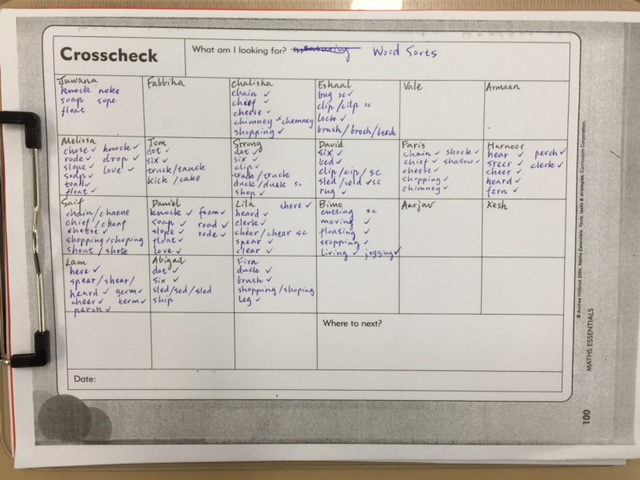 Crosscheck
What am I looking for? Word Sorts
Juwana
knock noke
soap sope
float
Fabbiha
Chalisha
chain ✓
chief ✓
cheese ✓
chimney × chemney
shopping ✓
Eshaal
bug sc ✓
clip /cilp sc
lock ✓
brush / bresh /
Vale
Armaan
Melissa
chose ✓ knock ✓
rode ✓ drop ✓
slope ✓ love ✓
soap ✓
toak ✓
float ✓
Tom
dot ✓
six ✓
truck/
kick / cake
Strung
dot ✓
six ✓
clip ✓
truck
duck / sc
shop ✓
David
six ✓
bed ✓
clip / cilp / sc
sled / sc
rug ✓
Paris
chain ✓ shock ✓
chief ✓ shallow ✓
cheese ✓
shopping ✓
chimney ✓
Harnoor
hear ✓ perch ✓
steer ✓ clerk ✓
cheer ✓
heard ✓
fern ✓
Saif
chain / chaene
chief / cheaf
cheese ✓
shopping / choping
shout / shote
Daniel
knock ✓ foam ✓
soap ✓ road ✓
slope ✓ rode ✓
float ✓
love ✓
Lila there ✓
heard ✓
clerk ✓
cheer / chear sc
spear ✓
clear ✓
Bimo
cutting sc
moving ✓
floating ✓
stopping ✓
living ✓ jogging ✓
Aarjav
Kesh
Lam
here ✓
spear / shear /
heard ✓ germ ✓
cheer ✓ term ✓
perch ✓
Abigail
dot ✓
six ✓
sled / sed / sled
ship
duck ✓
brush ✓
shopping / shoping
leg ✓
Where to next?
Date:
© Andrea Hillbrick 2004, Maths Essentials: Tools, tasks & strategies. Curriculum Corporation.
MATHS ESSENTIALS
100